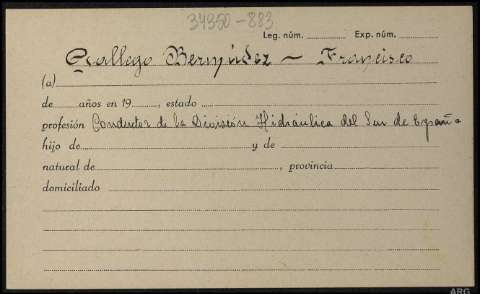 34350-883
Leg. núm. Exp. núm.
Gallego Bermúdez - Francisco
(a)
de años en 19, estado
profesión Conductor de la División Hidráulica del Sur de España
hijo de y de
natural de, provincia
domiciliado
ARG